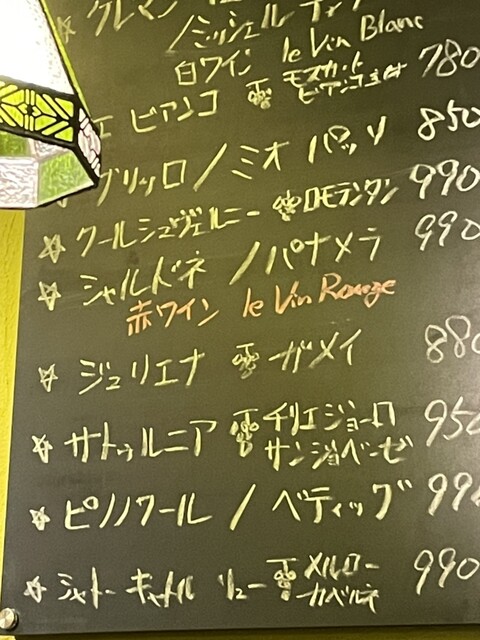 ☆ クレマン
/ミッシェル ディ
白ワイン le Vin Blanc
ビアンコ モスカット 780
ビアンコ主体
グリッロ / ミオ パッソ 850
☆ クール シュヴェルニー ロモランタン 990
☆ シャルドネ / パナメラ 990
赤ワイン le Vin Rouge
☆ ジュリエナ ガメイ 880
☆ サトゥルニア チリエジョーロ 950
サンジョベーゼ
☆ ピノノワール / ベティッグ 99
☆ シャトー キャトル メルロー 990
カベルネ